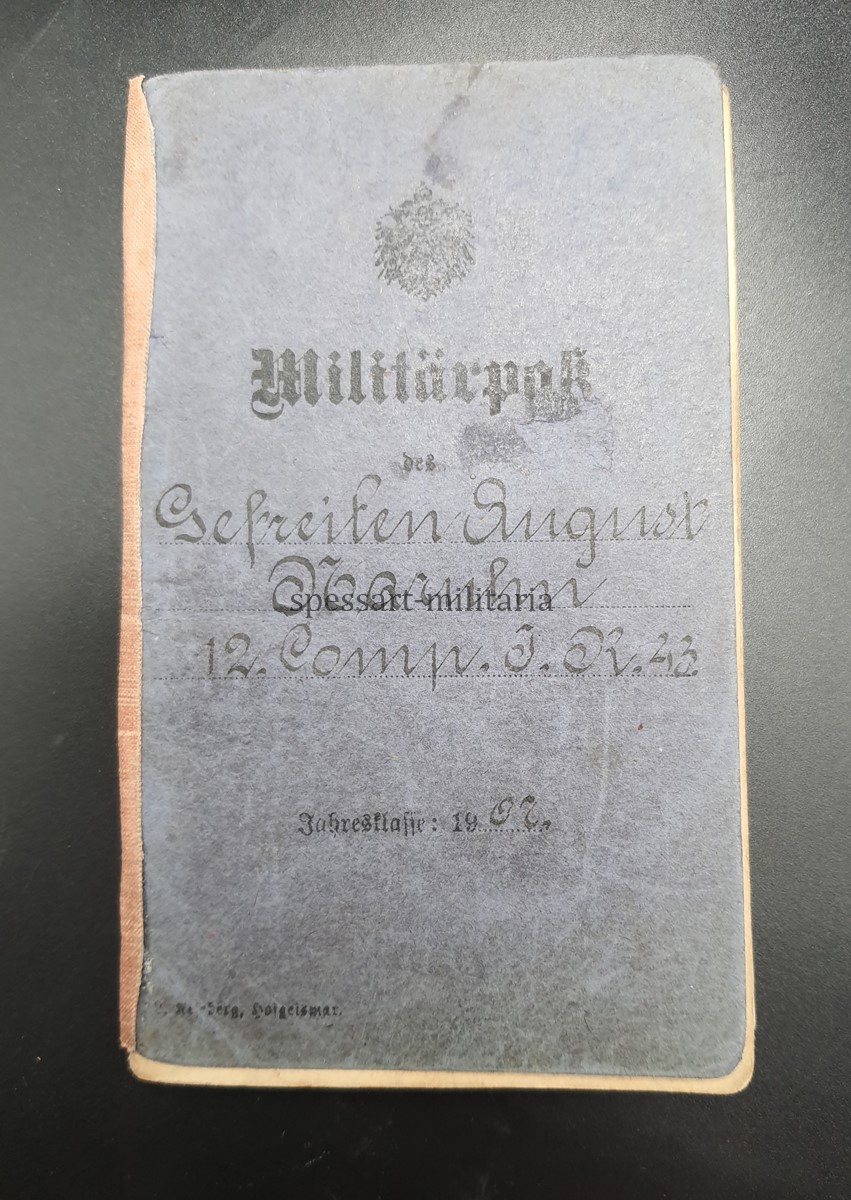 Militärpaß
des
Gefreiten August
spessart-militaria
12. Comp. I. R. 43.
Jahresklasse: 1902.
Hofgeismar.